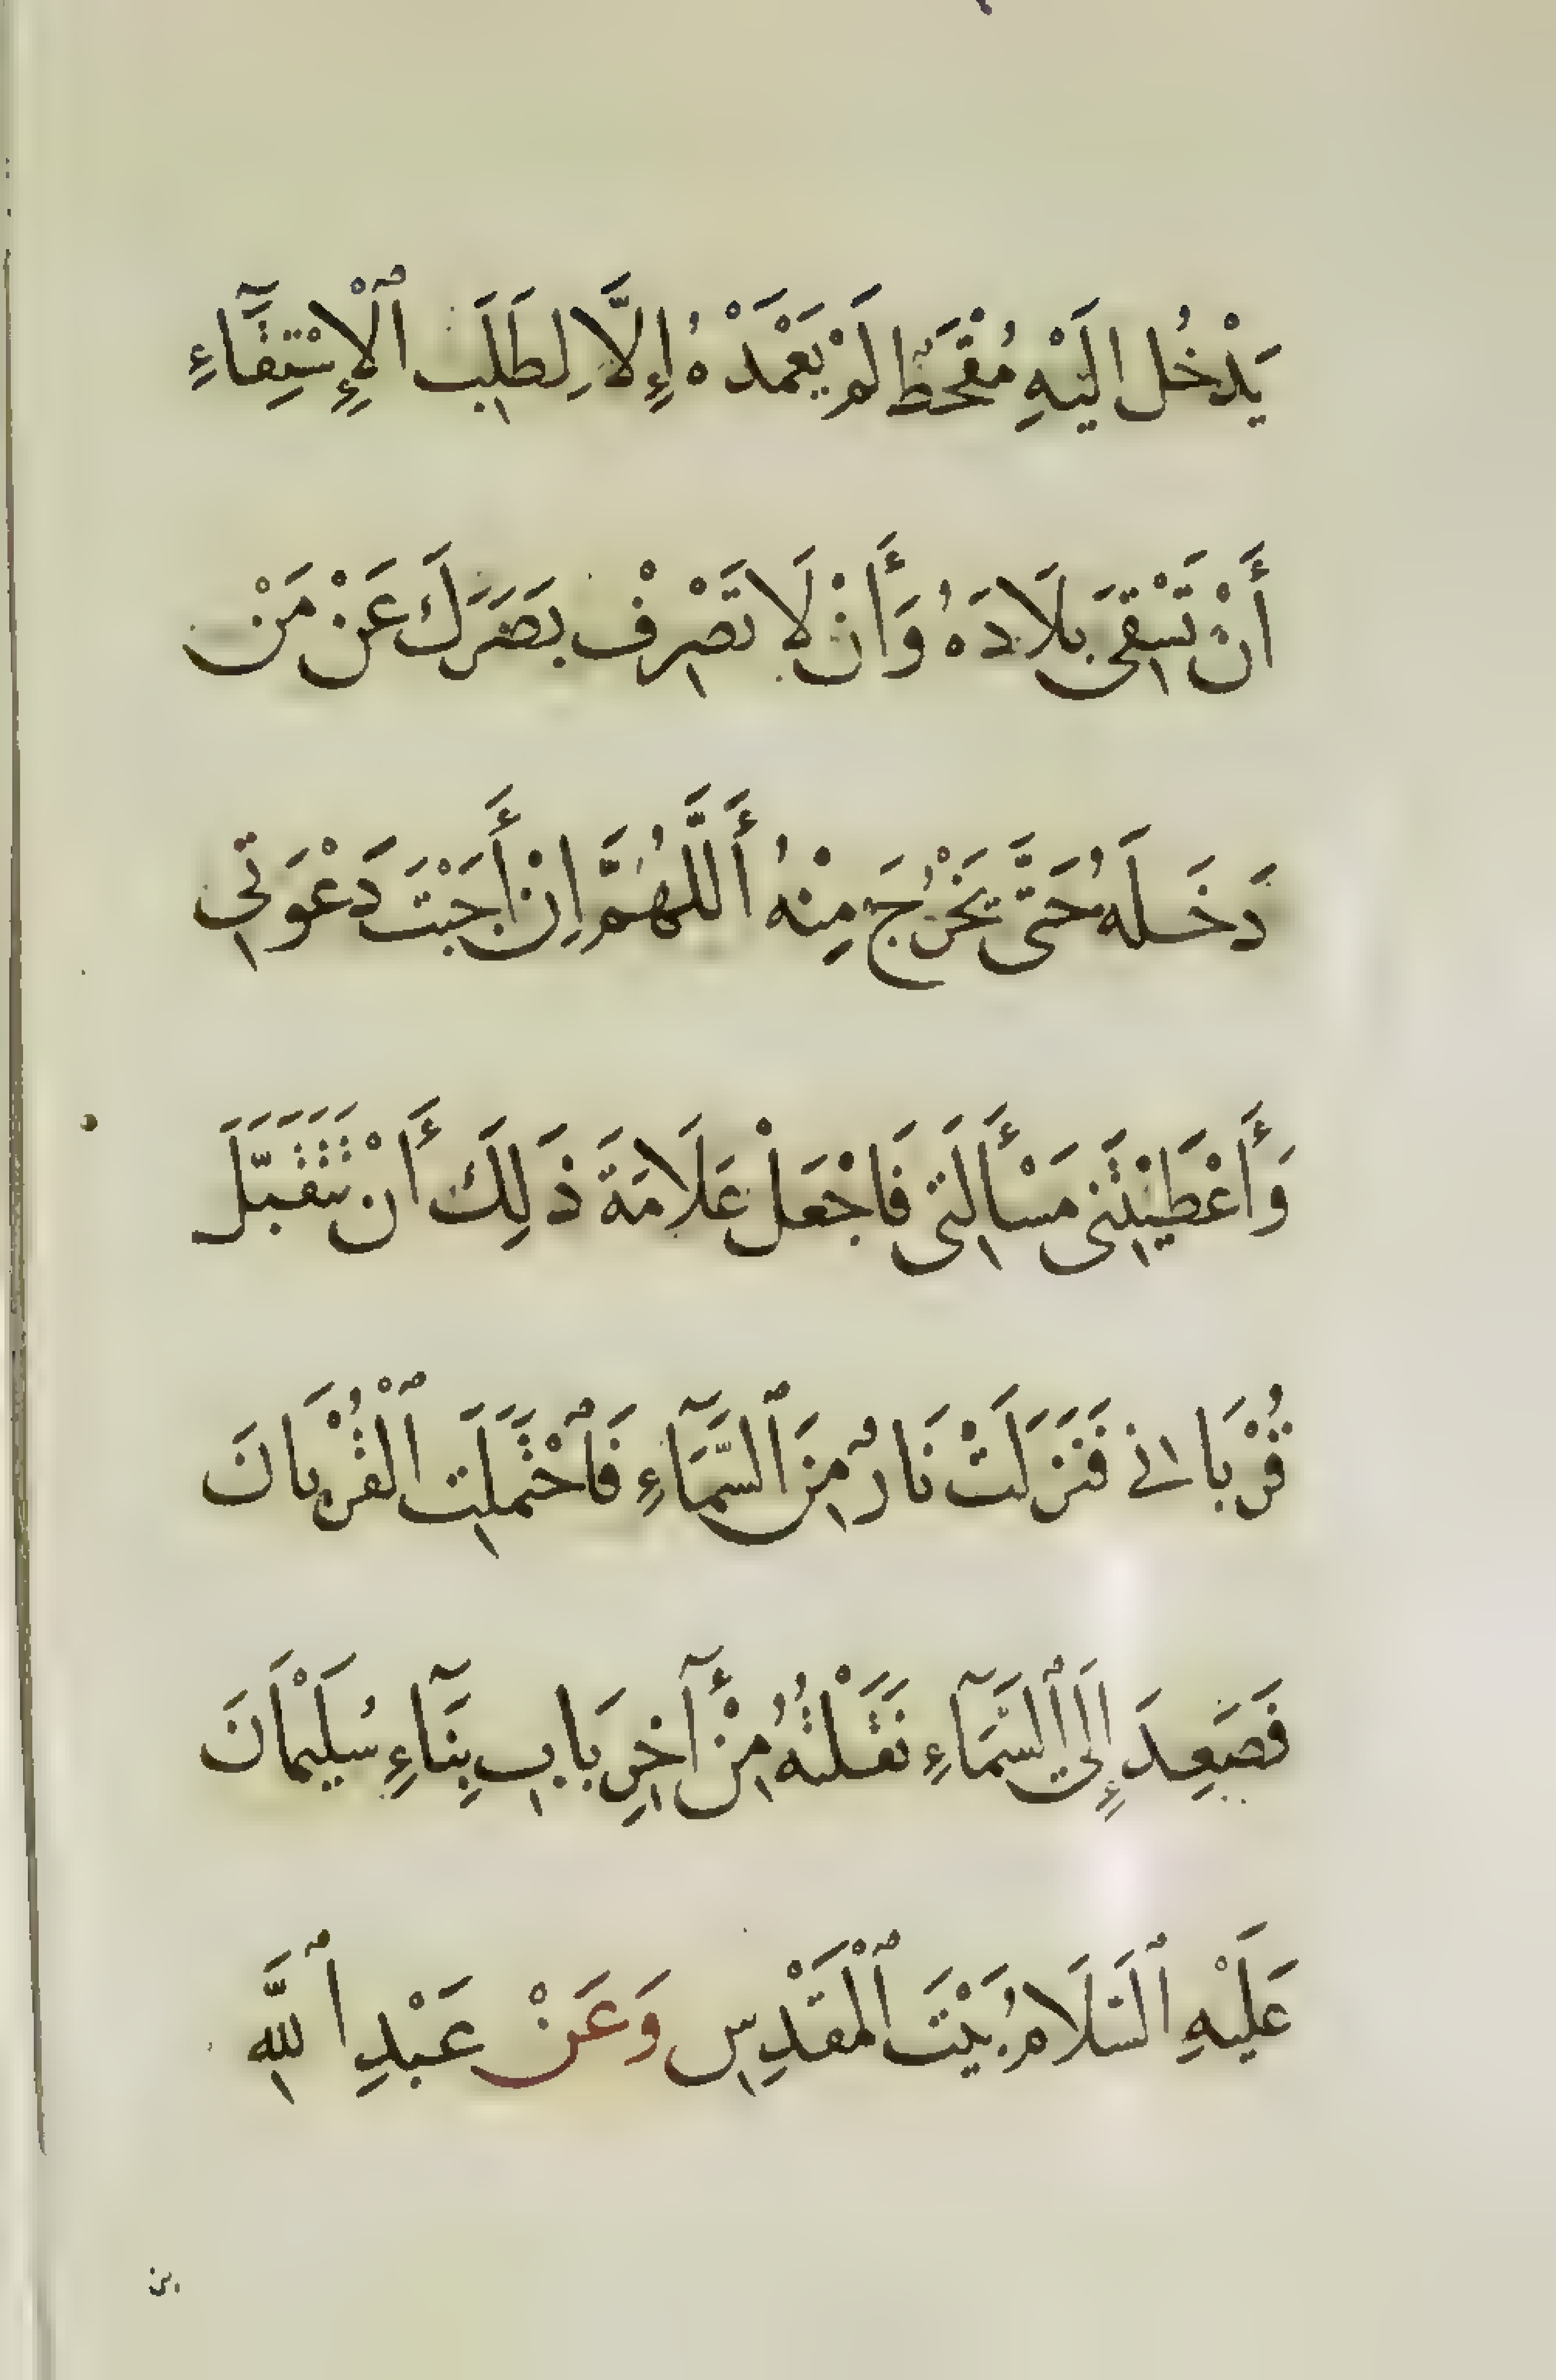 يَدْخُل اِلَيْهِ مُقْحَطٌ لَمْ يَعْمَدْهُ إِلَّا لِطَلَبِ ٱلْإِسْتِقَآءِ
أَنْ تَسْقِىَ بِلَادَهُ وَأَنْ لَا تَصْرِفْ بَصَرَكَ عَنْ مَنْ
دَخَلَهُ حَتَّى يَخْرُجَ مِنْهُ أَللَّهُمَّ اِنْ أَجَبْتَ دَعْوَتِي
وَأَعْطَيْتَنِى مَسْأَلَتِى فَاجْعَلْ عَلَامَةَ ذَلِكَ أَنْ تَتَقَبَّلَ
قُرْبَانِى فَنَزَلَتْ نَارٌ مِنَ ٱلسَّمَآءِ فَٱحْتَمَلَتِ ٱلْقُرْبَانَ
فَصَعِدَ إِلَى ٱلسَّمَآءِ نَقَلْتُهُ مِنْ أٓخِرِ بَابِ بِنَآءِ سُلَيْمَانَ
عَلَيْهِ ٱلسَلَامُ بَيْتَ ٱلْمَقْدِسِ وَعَنْ عَبْدِ ٱللَّهِ
بن